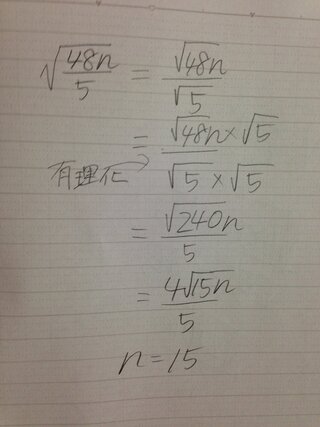 √(48n/5) = √48n/√5
= √48n×√5/√5×√5
有理化
= √240n/5
= 4√15n/5
n=15